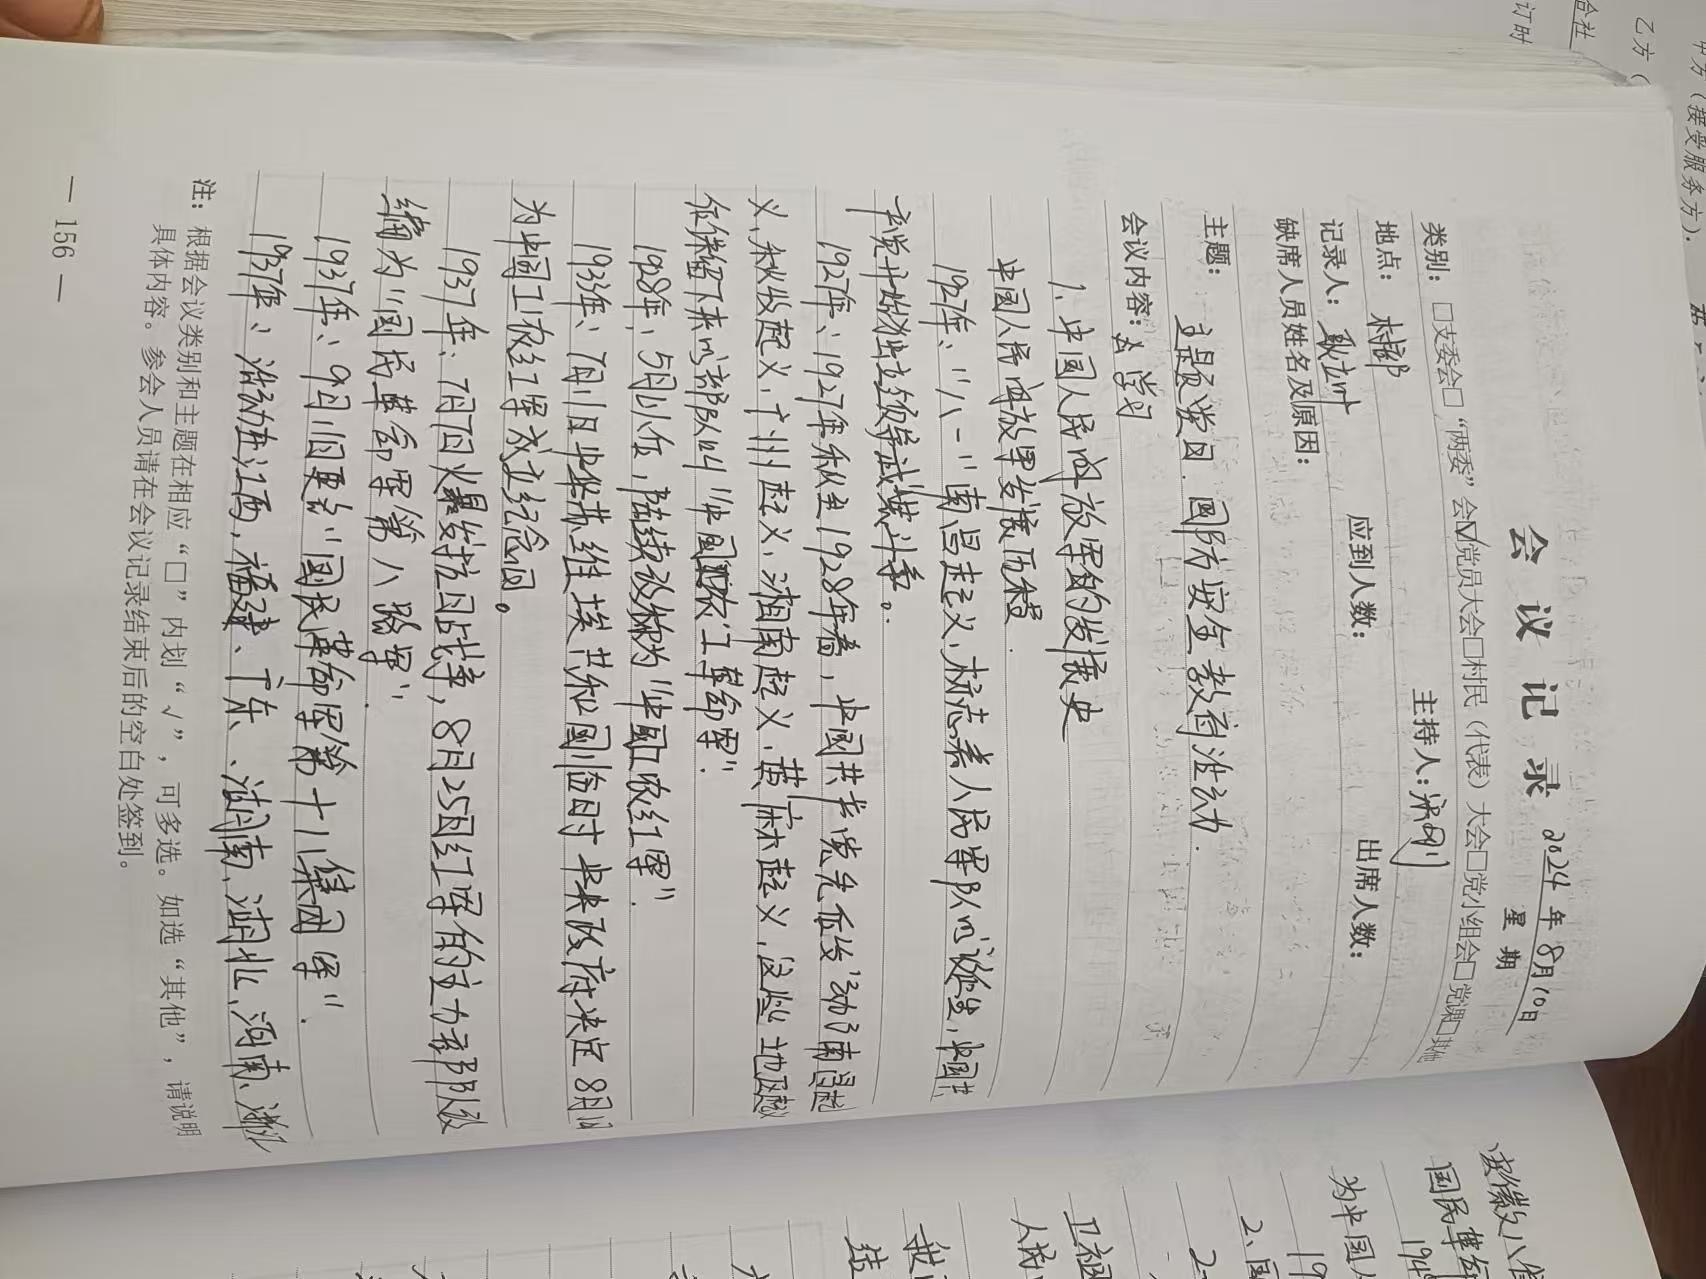 会议记录
2024年8月10日
星期
类别：□支委会□“两委”会☑党员大会□村民（代表）大会□党小组会□党课□其他
地点：村部 主持人：
记录人： 应到人数： 出席人数：
缺席人员姓名及原因：
主题：主题党日、国防安全教育活动.
会议内容：学习
1、中国人民解放军的发展史
中国人民解放军发展历程.
1927年：“八一”南昌起义，标志着人民军队的诞生，中国共
产党开始独立领导武装斗争。
1927年：1927年秋至1928年春，中国共产党先后发动了南昌起
义、秋收起义、广州起义、湘南起义、黄麻起义，这些地区起义
后保留下来的部队叫“中国工农革命军”.
1928年：5月以后，陆续改称为“中国工农红军”.
1933年：7月11日中华苏维埃共和国临时中央政府决定8月1日
为中国工农红军成立纪念日。
1937年：7月7日爆发抗日战争，8月25日红军的主力部队改
编为“国民革命军第八路军”.
1937年：9月11日更名“国民革命军第十八集团军”.
1937年：活动在江西，福建、广东、湖南、湖北、河南、浙江
注：根据会议类别和主题在相应“□”内划“√”，可多选。如选“其他”，请说明
具体内容。参会人员请在会议记录结束后的空白处签到。
— 156 —
安徽八省
国民革命
194
为中国人
19
2、国
卫祖
人民
我
结
甲方（接受服务方）
乙方（
合社
订时